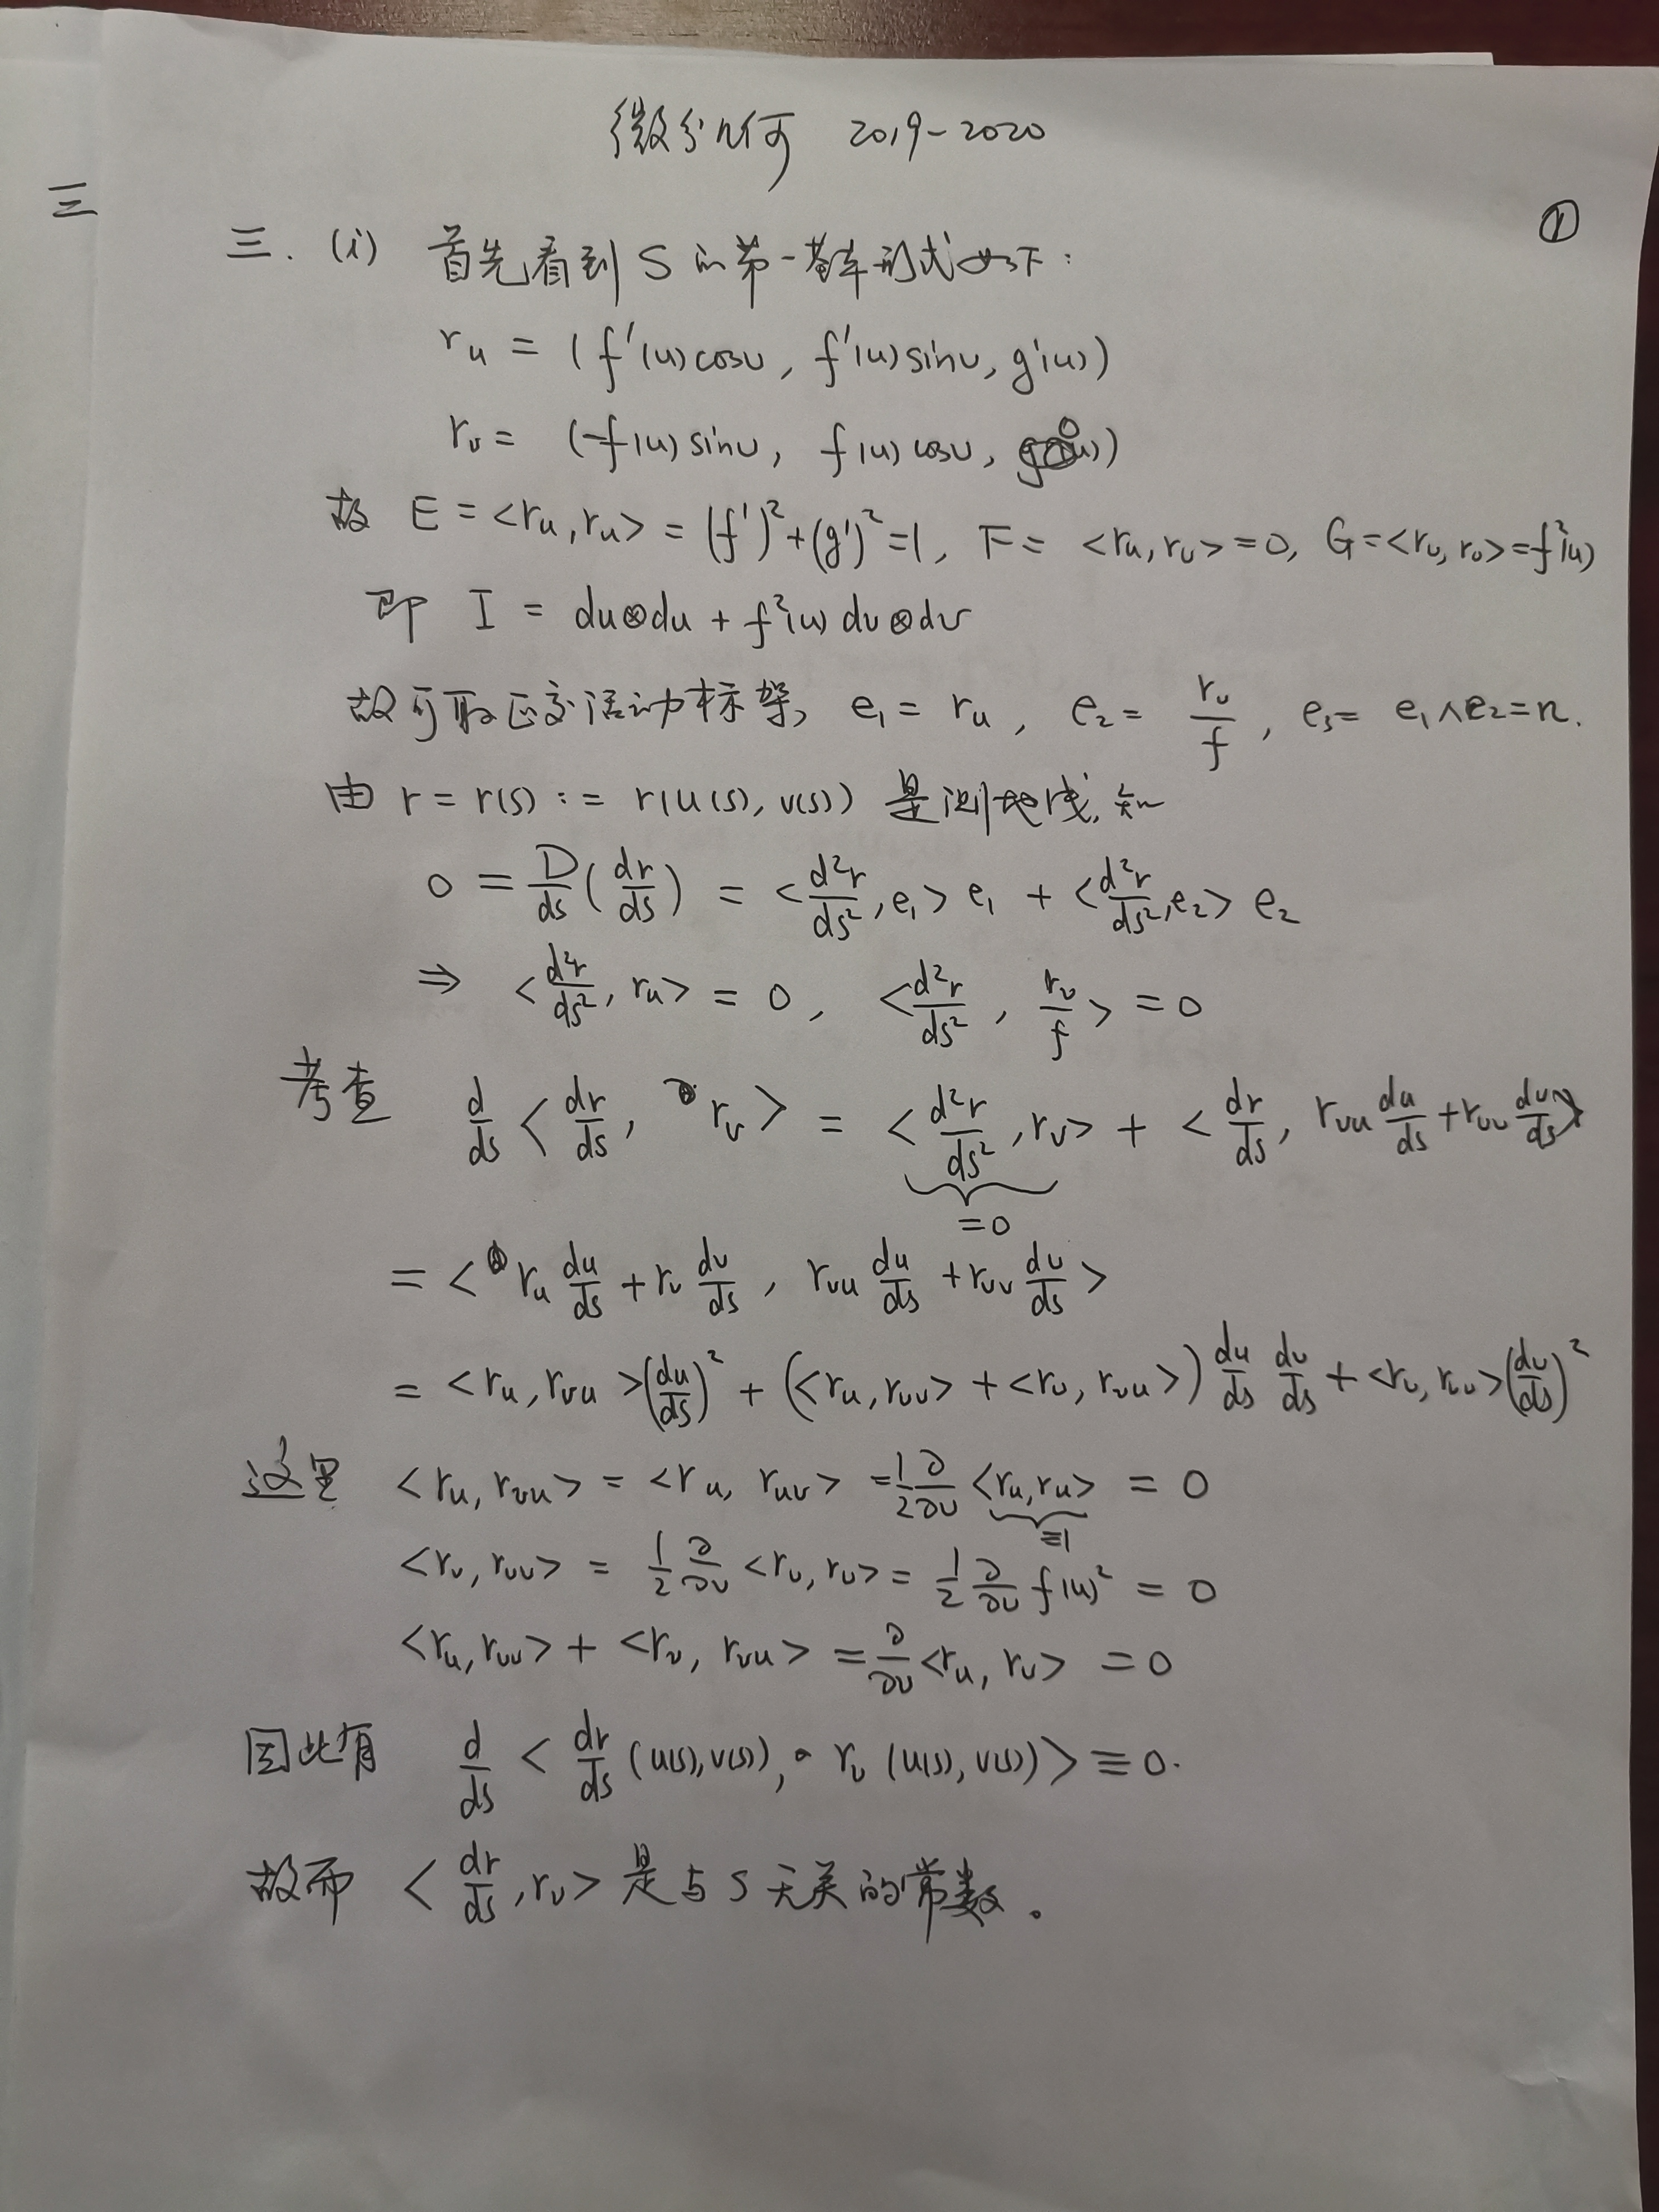 微分几何 2019-2020
三
①
三.(i) 首先看到 S 的第一基本形式如下:
r_u = (f'(u)cosv, f'(u)sinv, g'(u))
r_v = (-f(u)sinv, f(u)cosv, 0)
故 E = <r_u, r_u> = (f')²+(g')²=1, F = <r_u, r_v> = 0, G=<r_v, r_v>=f²(u)
即 I = du⊗du + f²(u)dv⊗dv
故可取正交活动标架, e₁ = r_u, e₂ = r_v/f, e₃ = e₁∧e₂=n.
由 r = r(s) := r(u(s), v(s)) 是测地线, 知
0 = D/ds(dr/ds) = <d²r/ds², e₁> e₁ + <d²r/ds², e₂> e₂
⇒ <d²r/ds², r_u> = 0, <d²r/ds², r_v/f> = 0
考查 d/ds <dr/ds, r_v> = <d²r/ds², r_v> + <dr/ds, r_vu du/ds + r_vv dv/ds>
=0
= <r_u du/ds + r_v dv/ds, r_vu du/ds + r_vv dv/ds>
= <r_u, r_vu>(du/ds)² + (<r_u, r_vv> + <r_v, r_vu>) du/ds dv/ds + <r_v, r_vv>(dv/ds)²
这里 <r_u, r_vu> = <r_u, r_uv> = 1/2 ∂/∂v <r_u, r_u> = 0
≡1
<r_v, r_vv> = 1/2 ∂/∂v <r_v, r_v> = 1/2 ∂/∂v f(u)² = 0
<r_u, r_vv> + <r_v, r_vu> = ∂/∂v <r_u, r_v> = 0
因此有 d/ds <dr/ds (u(s), v(s)), r_v (u(s), v(s))> ≡ 0.
故而 <dr/ds, r_v> 是与 s 无关的常数。